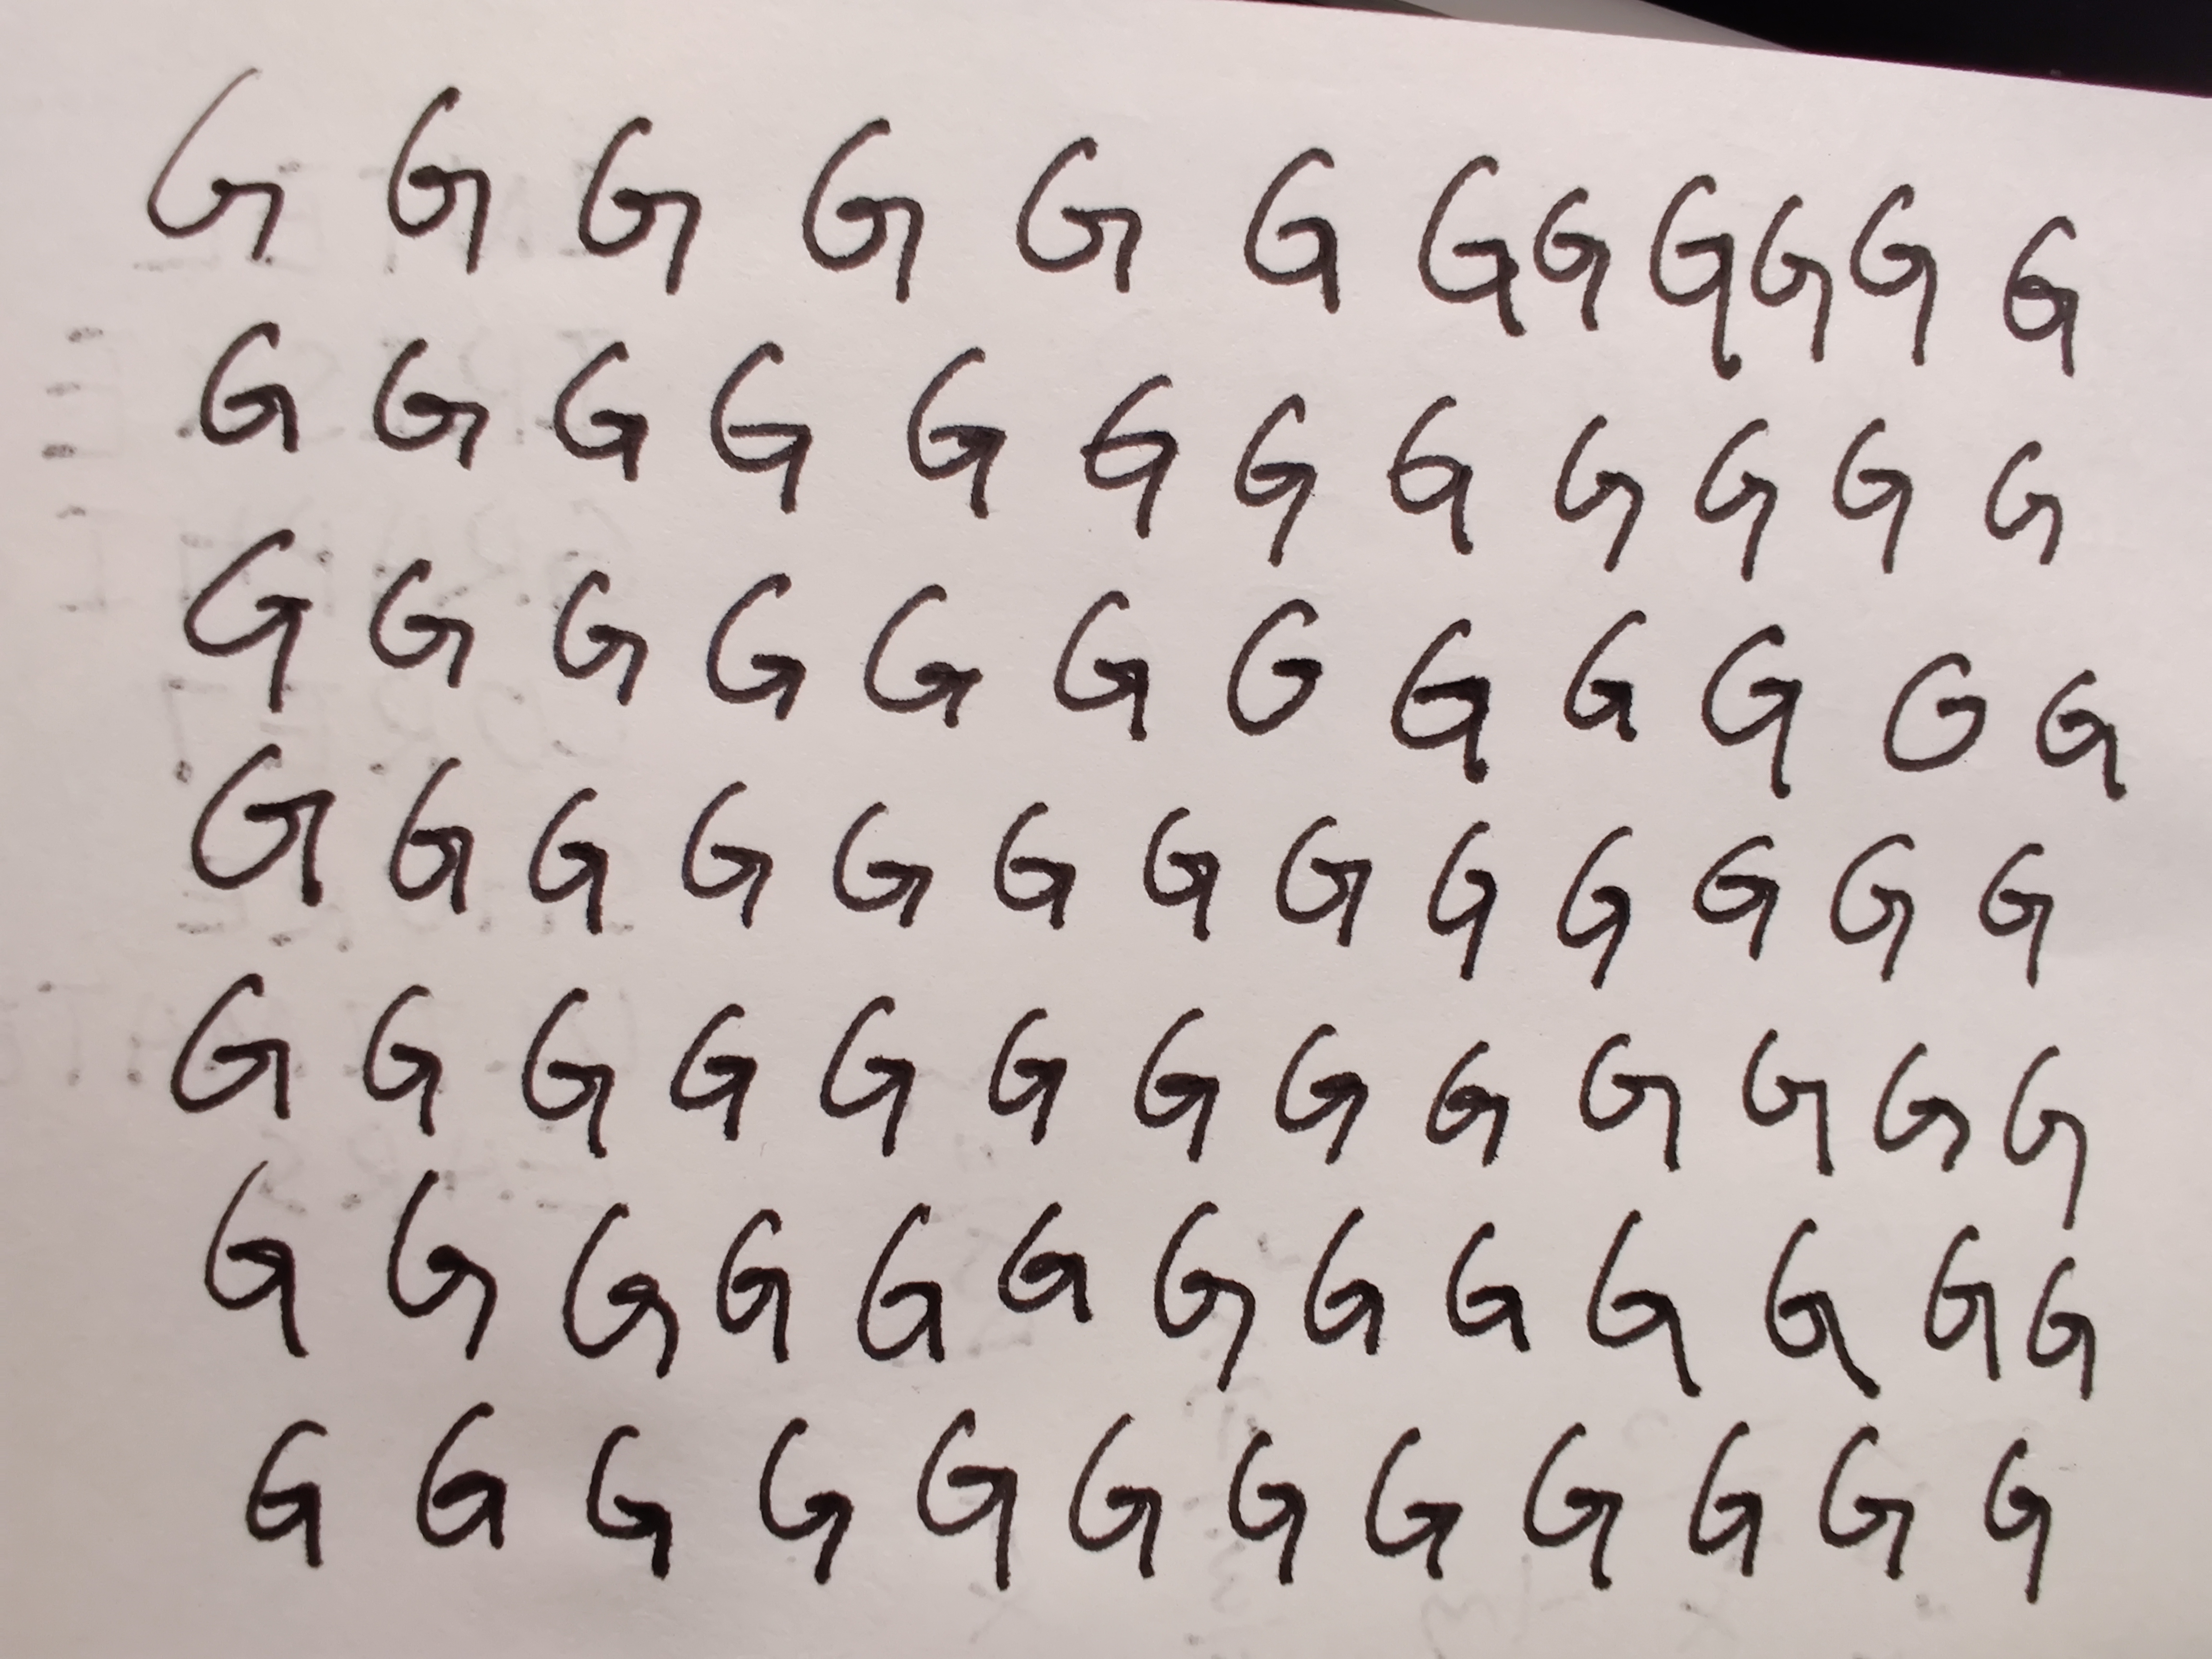 G G G G G G G G G G G G
G G G G G G G G G G G G
G G G G G G G G G G G G
G G G G G G G G G G G G G
G G G G G G G G G G G G G
G G G G G G G G G G G G G
G G G G G G G G G G G G